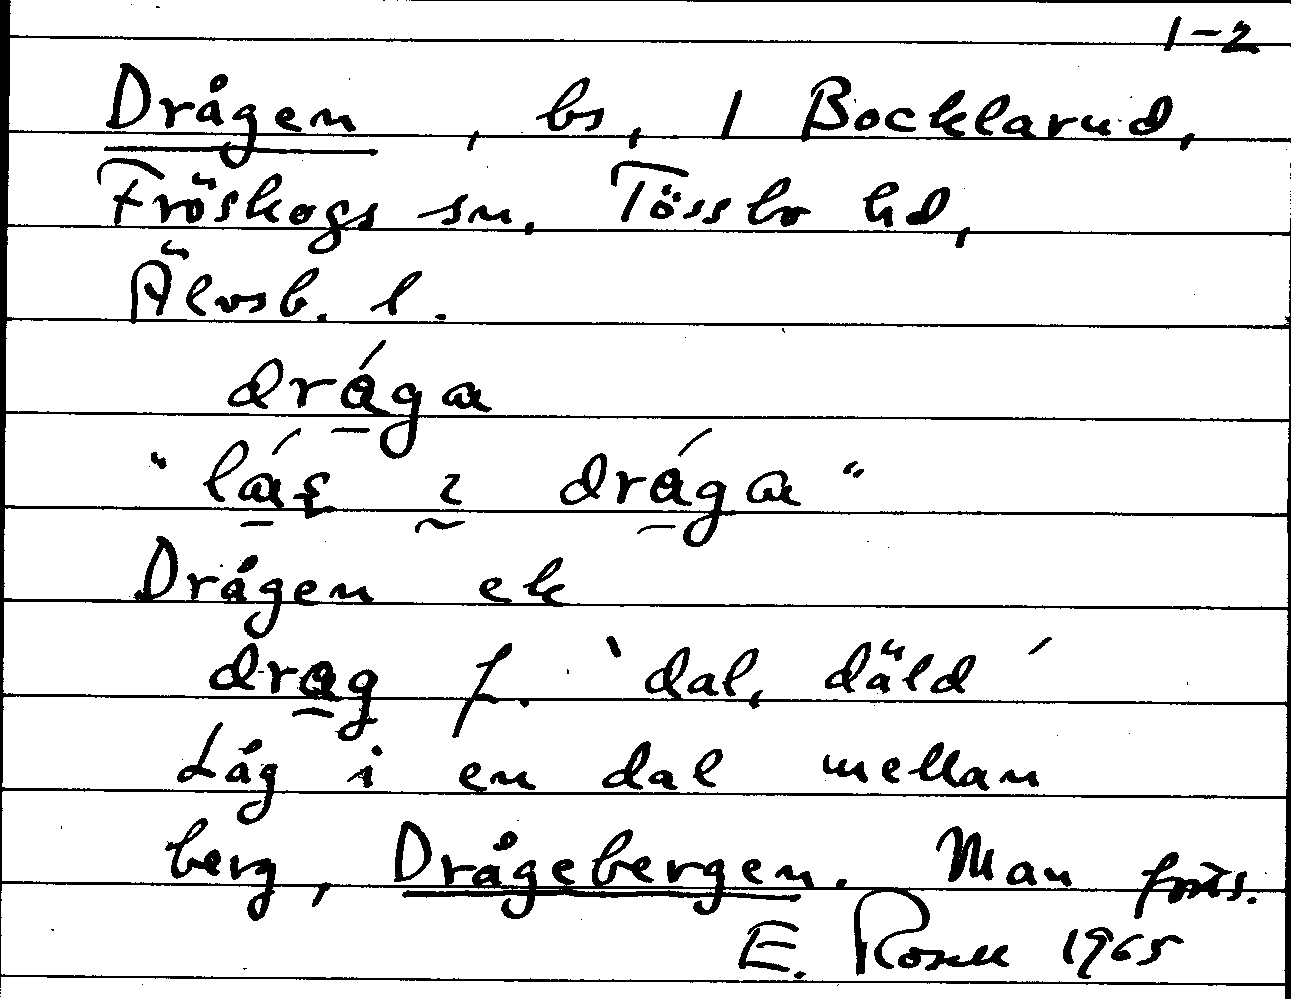 1-2
Drågen, bs, 1 Bocklarud,
Fröskogs sn, Tössbo hd,
Älvsb. l.
drága
"lág ı drága"
Drågen ek
drag f. 'dal, däld'
Låg i en dal mellan
berg, Drågebergen. Man forts.
E. Rosell 1965